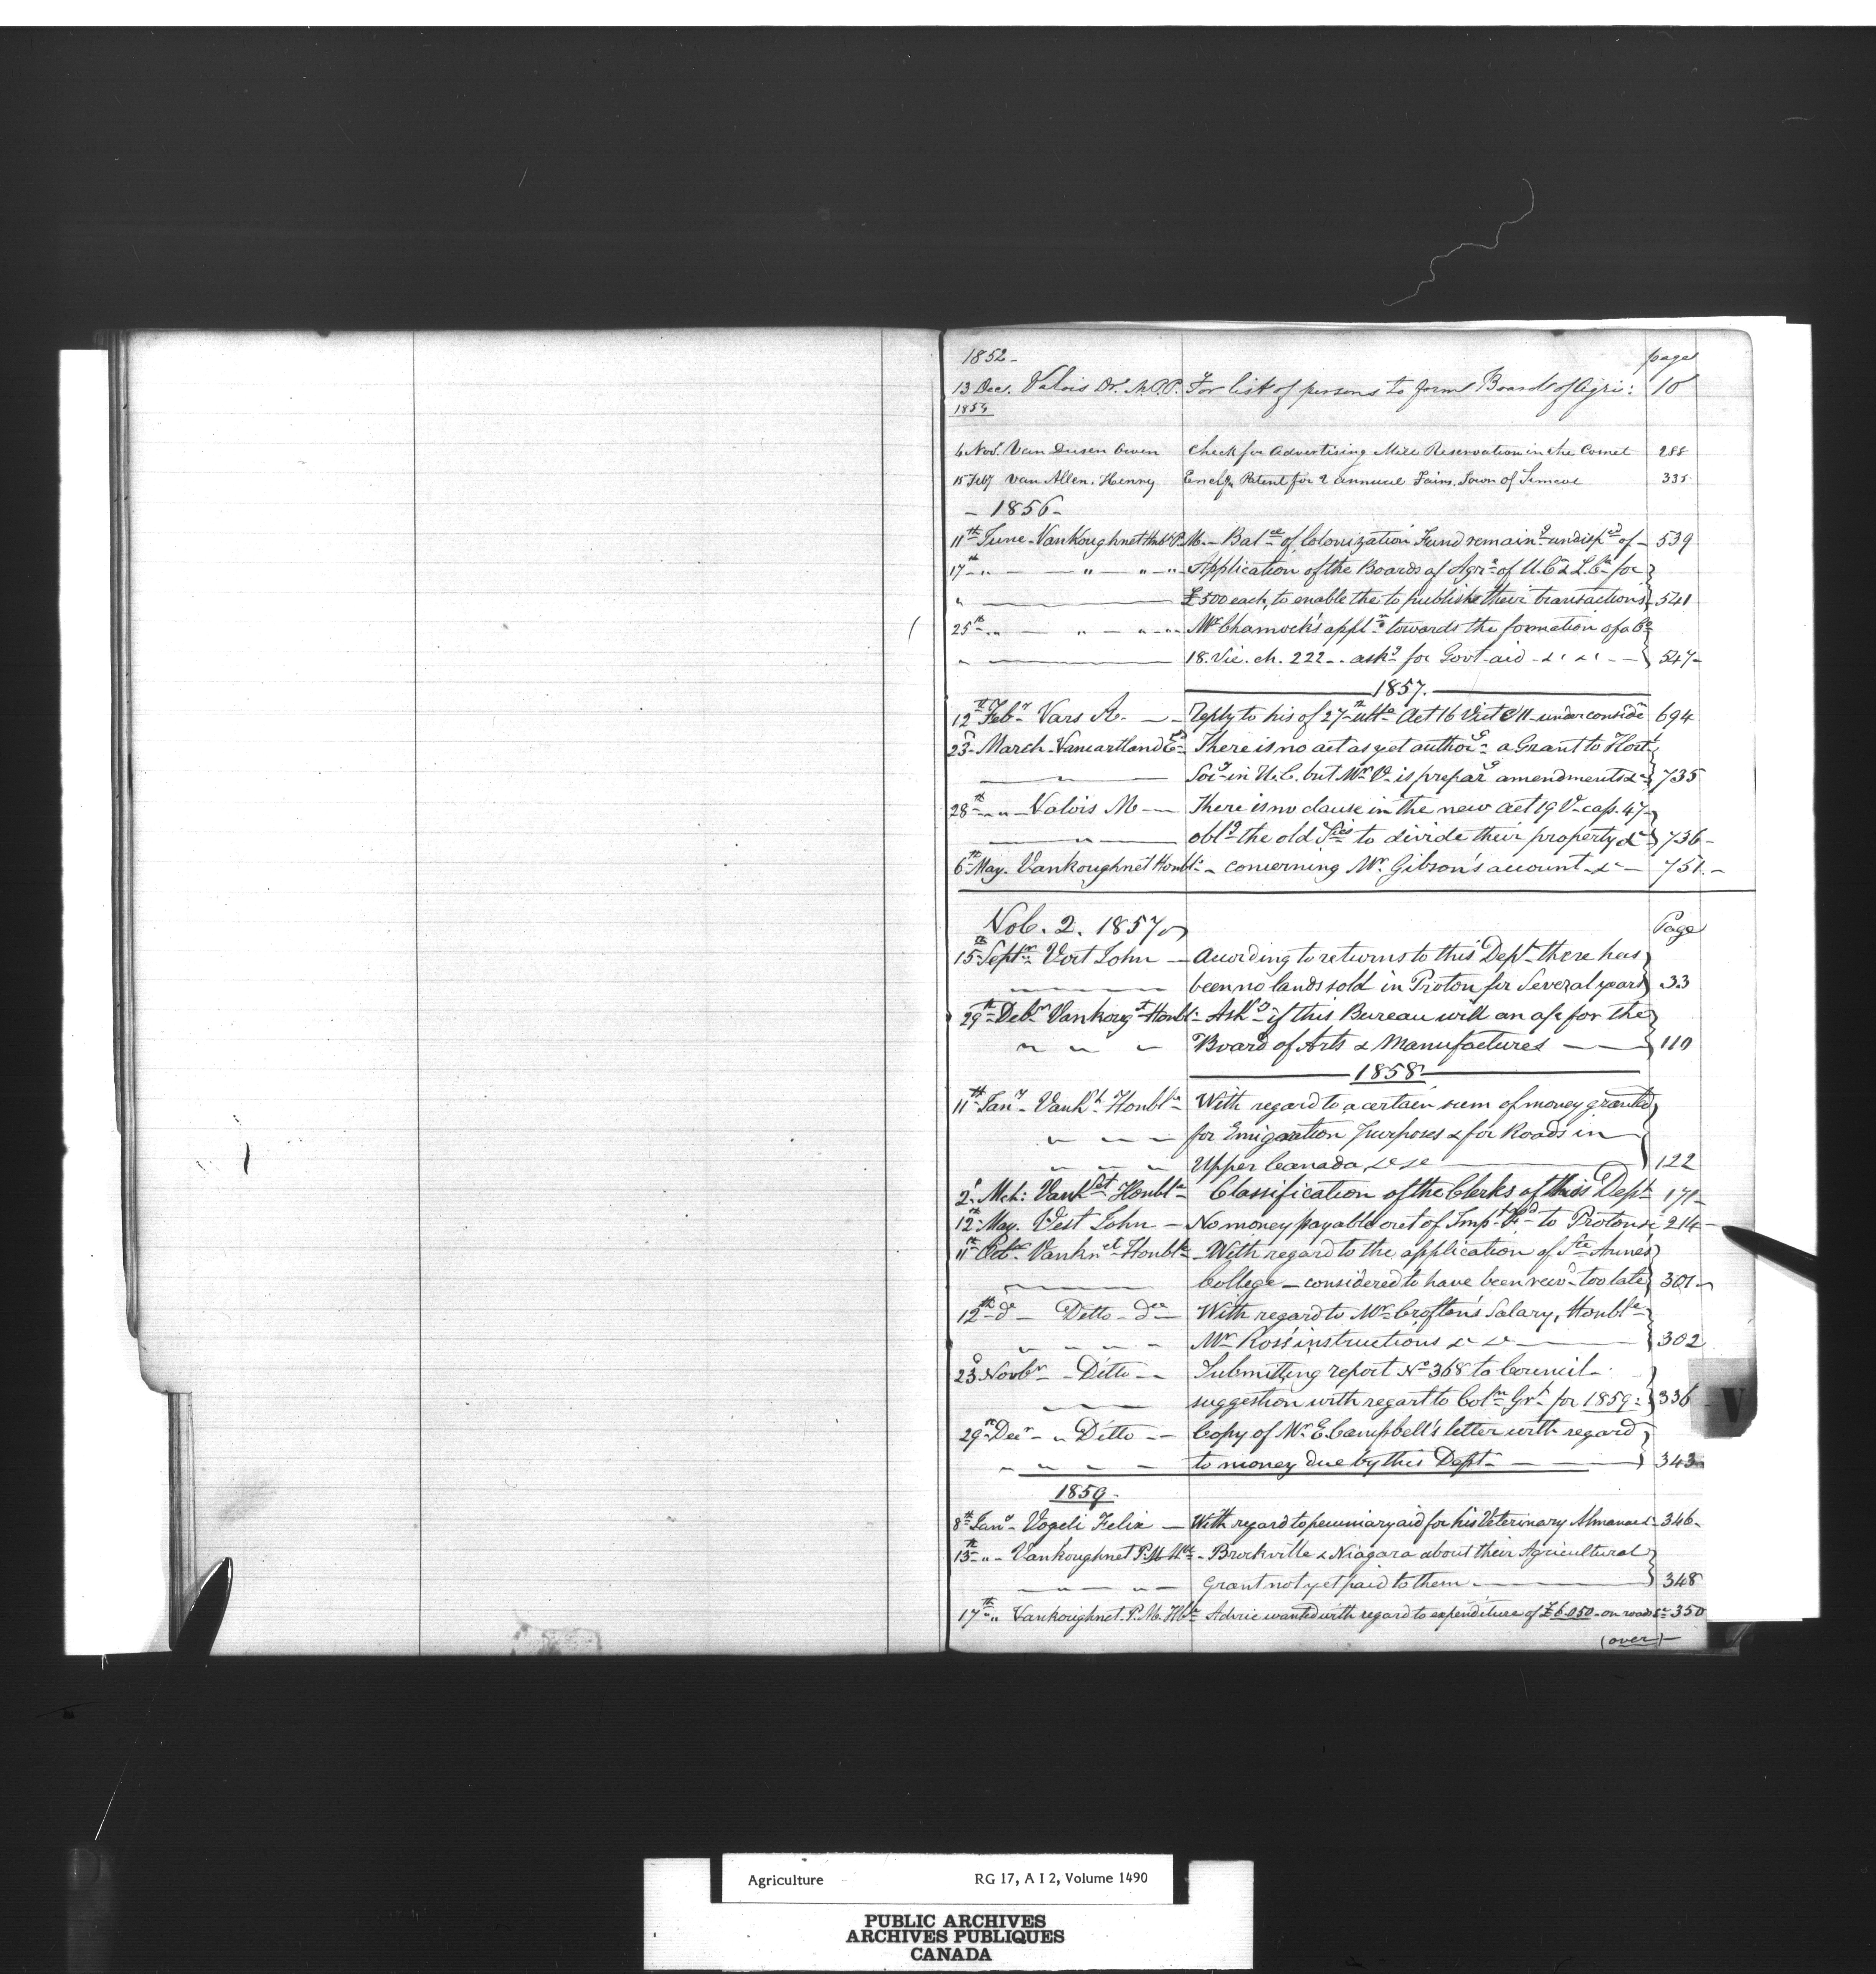 1852- pages
13 Dec. Valois Dr. M.P.P. For list of persons to form Boards of Agri: 10
1854
6 Nov. Van Dusen Owen Check for Advertising Mill Reservation in the Comet 288
15 Feby Van Allen. Henry Enclg Patent for 2 annual Fairs. Town of Simcoe 335
- 1856 -
11th June - VanKoughnet Honble P. M. - Balce of Colonization Fund remaing undisped of - 539
17th " — " — " - " - Application of the Boards of Agre of U.C. & L.C. for
" — £500 each, to enable the to publishe their transactions 541
25th " — " — " - " - Mr Charnock's appln towards the formation of a Co
" — 18. Vic. ch. 222 - - askg for Govt aid - &c &c - — 547 -
1857.
12th Feby Vars A. — Reply to his of 27th ulto Act 16 Vict C 11 under conside 694
23d March - Vancortland E — There is no act as yet authorg a Grant to Hort
— " — Socy in U.C. but Mr V. is preparg amendments &c 735
28th " - " - Valois M — There is no clause in the new Act 19 V. cap. 47 -
— " — oblg the old Sies to divide their property &c 736 -
6th May. Vankoughnet Honble - concerning Mr. Gibson's account - &c — 751. -
Vol. 2. 1857 Page
15th Septr Vert John — Acording to returns to this Dept there has
— been no lands sold in Proton for Several years 33
29th Debr Vankougt Honbl - Askg if this Bureau will an a/c for the
" " " Board of Arts & Manufactures — 110
1858
11th Jany - Vankt Honble With regard to a certain sum of money granted
" — " — for Emigration Purposes & for Roads in
" " " Upper Canada &c &c — 122
2d Mch: Vankt Honble Classification of the Clerks of this Dept 171 -
12th May. Vest John — No money payable out of Impt Fd to Proton &c 214 -
11th Octr Vanknet Honble - With regard to the application of Ste Annes
— College - considered to have been recd too late 301 -
12th do — Ditto - do — With regard to Mr Crofton's Salary, Honble
" " " " Mr Rose' instructions &c &c — 302
23d Novbr - - Ditto - - Submitting report No 368 to Council -
— suggestion with regart to Coln Grt for 1859: 336
29th Decr - " Ditto - - Copy of Mr E. Campbell's letter with regard
" " " — to money due by this Dept - — 343
1859.
8th Jany - Vogeli Felix — With regard to pecuniary aid for his Veterinary Almanack 346 -
13th " - Vankoughnet P. M. Hble - Brockville & Niagara about their Agricultural
— " — " — Grant not yet paid to them — 348
17th " Vankoughnet. P. M. Hble Advice wanted with regard to expenditure of £6.050 - on roads &c 350
(over)
V
Agriculture RG 17, A I 2, Volume 1490
PUBLIC ARCHIVES
ARCHIVES PUBLIQUES
CANADA